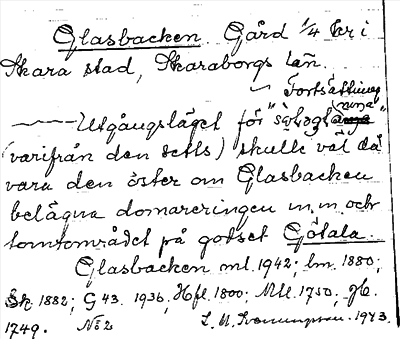 Glasbacken. Gård 1/4 kr i
Skara stad, Skaraborgs län.
Fortsättning
Utgångsläget för
(varifrån den setts) skulle väl då
vara den öster om Glasbacken
belägna domareringen m.m och
tomtområdet på godset Götala.
Glasbacken ml. 1942; lm. 1880;
Sk. 1882; G 43. 1936, Hfl. 1800; Mtl. 1750, Jb.
1749. No 2 1943.